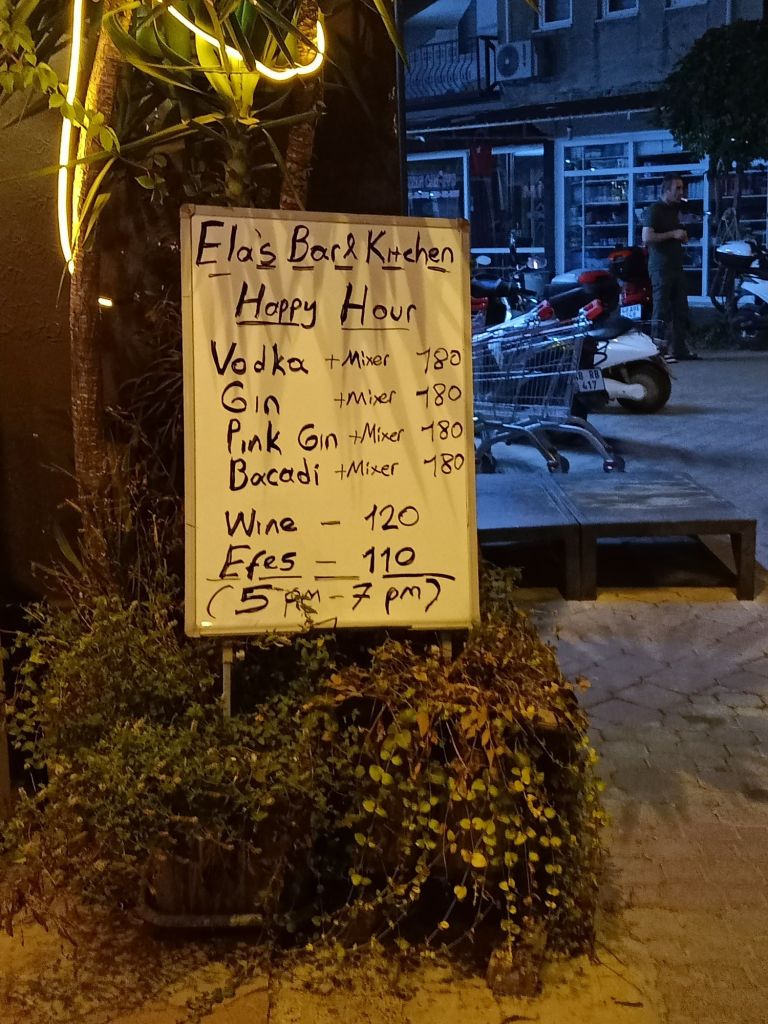 Ela's Bar & Kitchen
Happy Hour
Vodka +Mixer 180
Gin +Mixer 180
Pink Gin +Mixer 180
Bacadi +Mixer 180
Wine - 120
Efes = 110
(5 pm - 7 pm)
RB
417